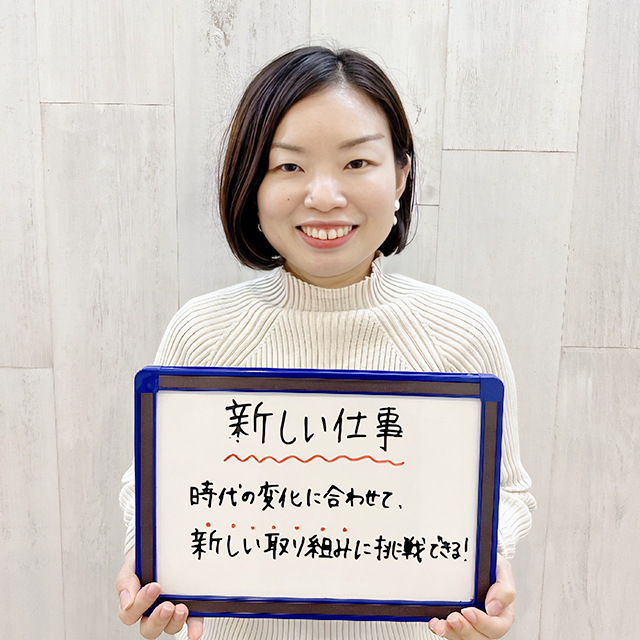 新しい仕事
時代の変化に合わせて、
新しい取り組みに挑戦できる!